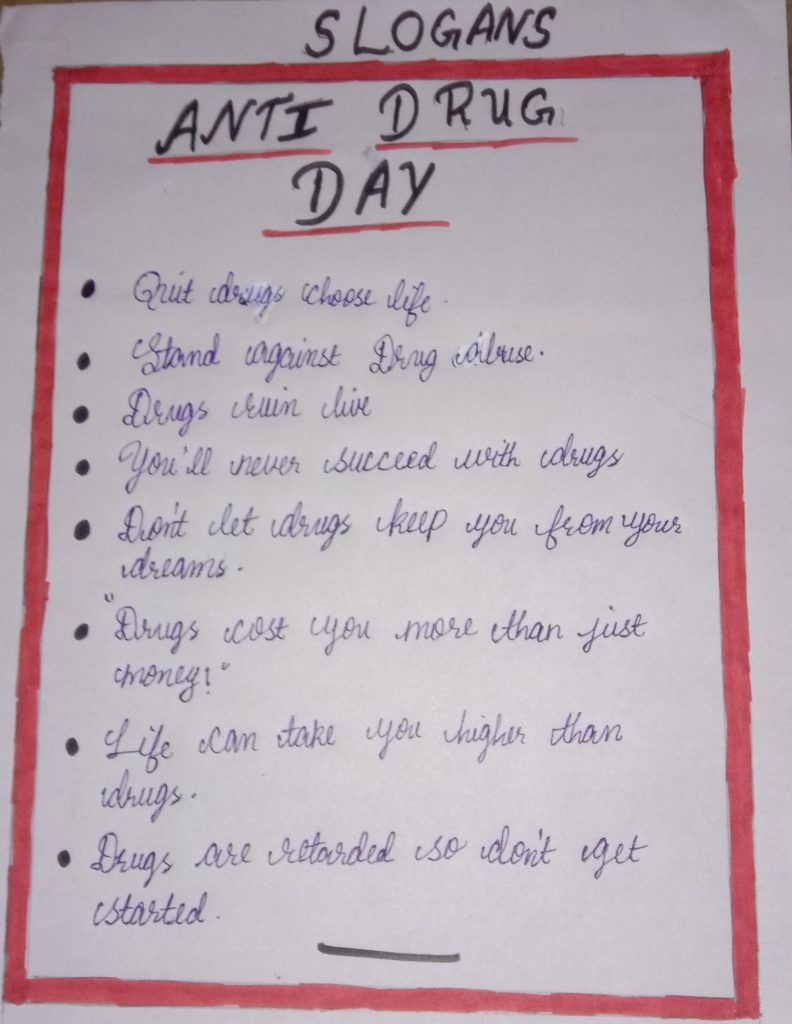 SLOGANS
ANTI DRUG
DAY
• Quit drugs choose life.
• Stand against Drug abuse.
• Drugs ruin live
• You'll never succeed with drugs
• Don't let drugs keep you from your
dreams.
• "Drugs cost you more than just
money!"
• Life can take you higher than
drugs.
• Drugs are retarded so don't get
started.